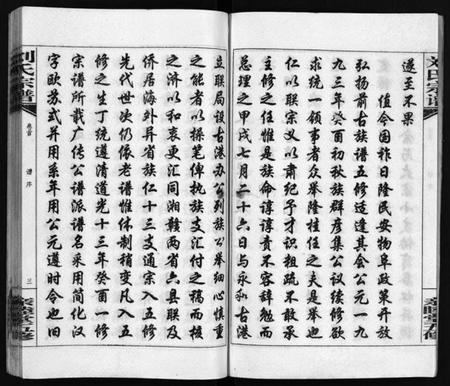 刘氏宗谱
遂至不果
值今国祚日隆民安物阜政策开放
弘扬前古族谱五修适逢其会公元一九
九三年癸酉初秋族群彦集公议续修欲
求统一领事者众举隆桂任之夫是举也
仁以联宗义以肃纪予才识粗疏不敢承
主修之任惟是族命谆谆责不容辞勉而
总理之甲戌七月二十六日与永和古港
立联局设古港办公列族公举细心慎重
之能者以操笔俾执族支汇付之祸而核
之济以和衷更汇同湘赣两省六县联及
侨居海外异省族仁十三支通宗入五修
先代世次仍依老谱惟体制稍变凡入五
修之生丁统遵清道光十三年癸酉一修
宗谱所载广传公谱派谱名采用简化汉
字欧苏式并用系年用公元遵时令也旧
刘氏宗谱
卷首
谱序
三